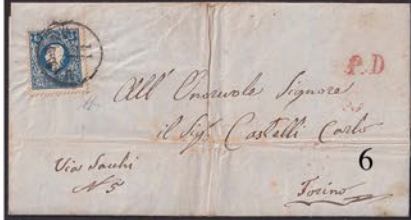 P.D
All' Onorevole Signore
il Sig. Castelli Carlo
6
Via Sacchi
N 5
Torino